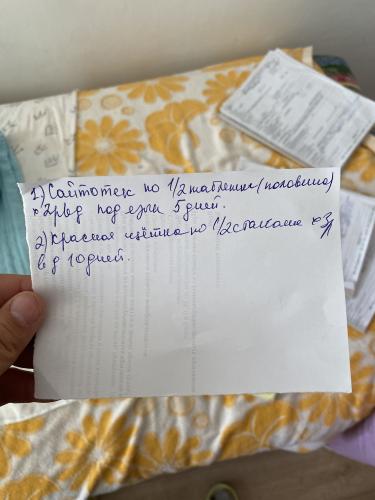 1) Сайтотек по 1/2 таблетки (половина)
х 2рвд под язык 5 дней.
2) Красная щётка по 1/2 стакана х 3р
в д 10 дней.